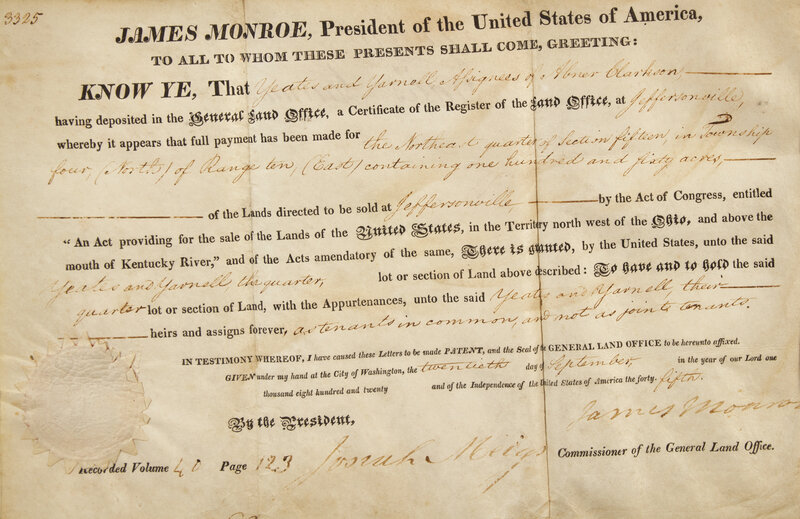 3325
JAMES MONROE, President of the United States of America,
TO ALL TO WHOM THESE PRESENTS SHALL COME, GREETING:
KNOW YE, That Yeates and Yarnell, Assignees of Abner Clarkson,
having deposited in the General Land Office, a Certificate of the Register of the Land Office, at Jeffersonville,
whereby it appears that full payment has been made for the Northeast quarter of Section fifteen, in Township
four, (North,) of Range ten, (East,) containing one hundred and sixty acres,
of the Lands directed to be sold at Jeffersonville by the Act of Congress, entitled
"An Act providing for the sale of the Lands of the United States, in the Territory north west of the Ohio, and above the
mouth of Kentucky River," and of the Acts amendatory of the same, There is granted, by the United States, unto the said
Yeates and Yarnell the quarter, lot or section of Land above described: To have and to hold the said
quarter lot or section of Land, with the Appurtenances, unto the said Yeates and Yarnell their
heirs and assigns forever, as tenants in common, and not as joint tenants.
IN TESTIMONY WHEREOF, I have caused these Letters to be made PATENT, and the Seal of the GENERAL LAND OFFICE to be hereunto affixed.
GIVEN under my hand at the City of Washington, the twentieth day of September in the year of our Lord one
thousand eight hundred and twenty and of the Independence of the United States of America the forty-fifth.
By the President, James Monroe
Recorded Volume 40 Page 123 Josiah Meigs Commissioner of the General Land Office.